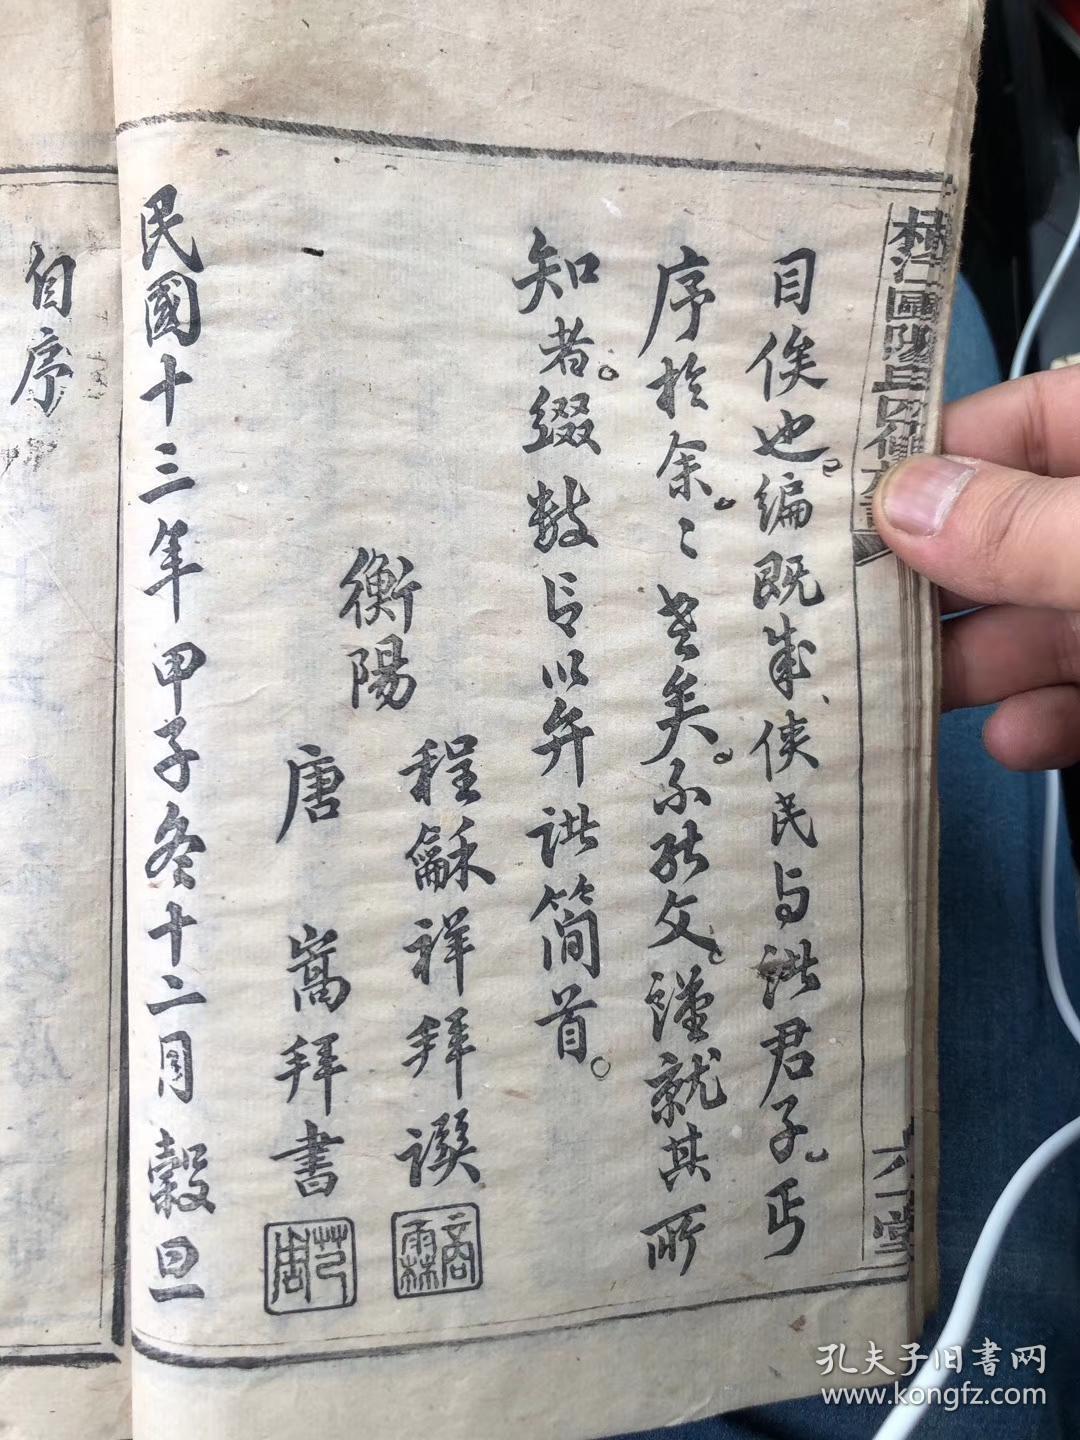 目俟也编既成侠民与诸君子丐
序於余〻老矣不能文謹就其所
知者缀数言以弁诸简首
衡陽
程龢祥拜譔
唐嵩拜書
民國十三年甲子冬十二月穀旦
自序
六一堂
孔夫子旧書网
www.kongfz.com